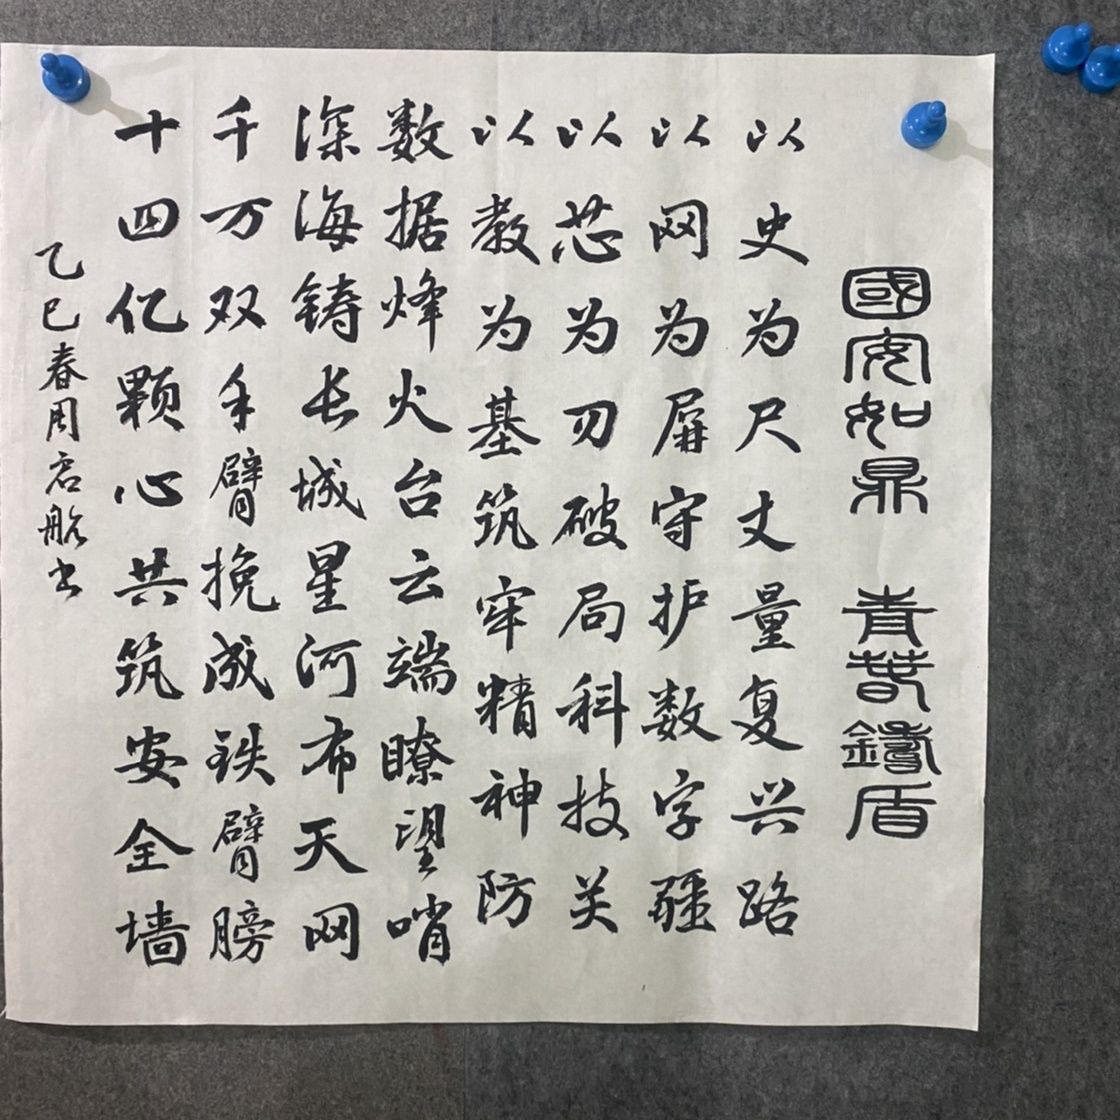 國安如鼎 青春鑄盾
以史为尺丈量复兴路
以网为屏守护数字疆
以芯为刃破局科技关
以教为基筑牢精神防
数据烽火台云端瞭望哨
深海铸长城星河布天网
千万双手臂挽成铁臂膀
十四亿颗心共筑安全墙
乙巳春周启航书